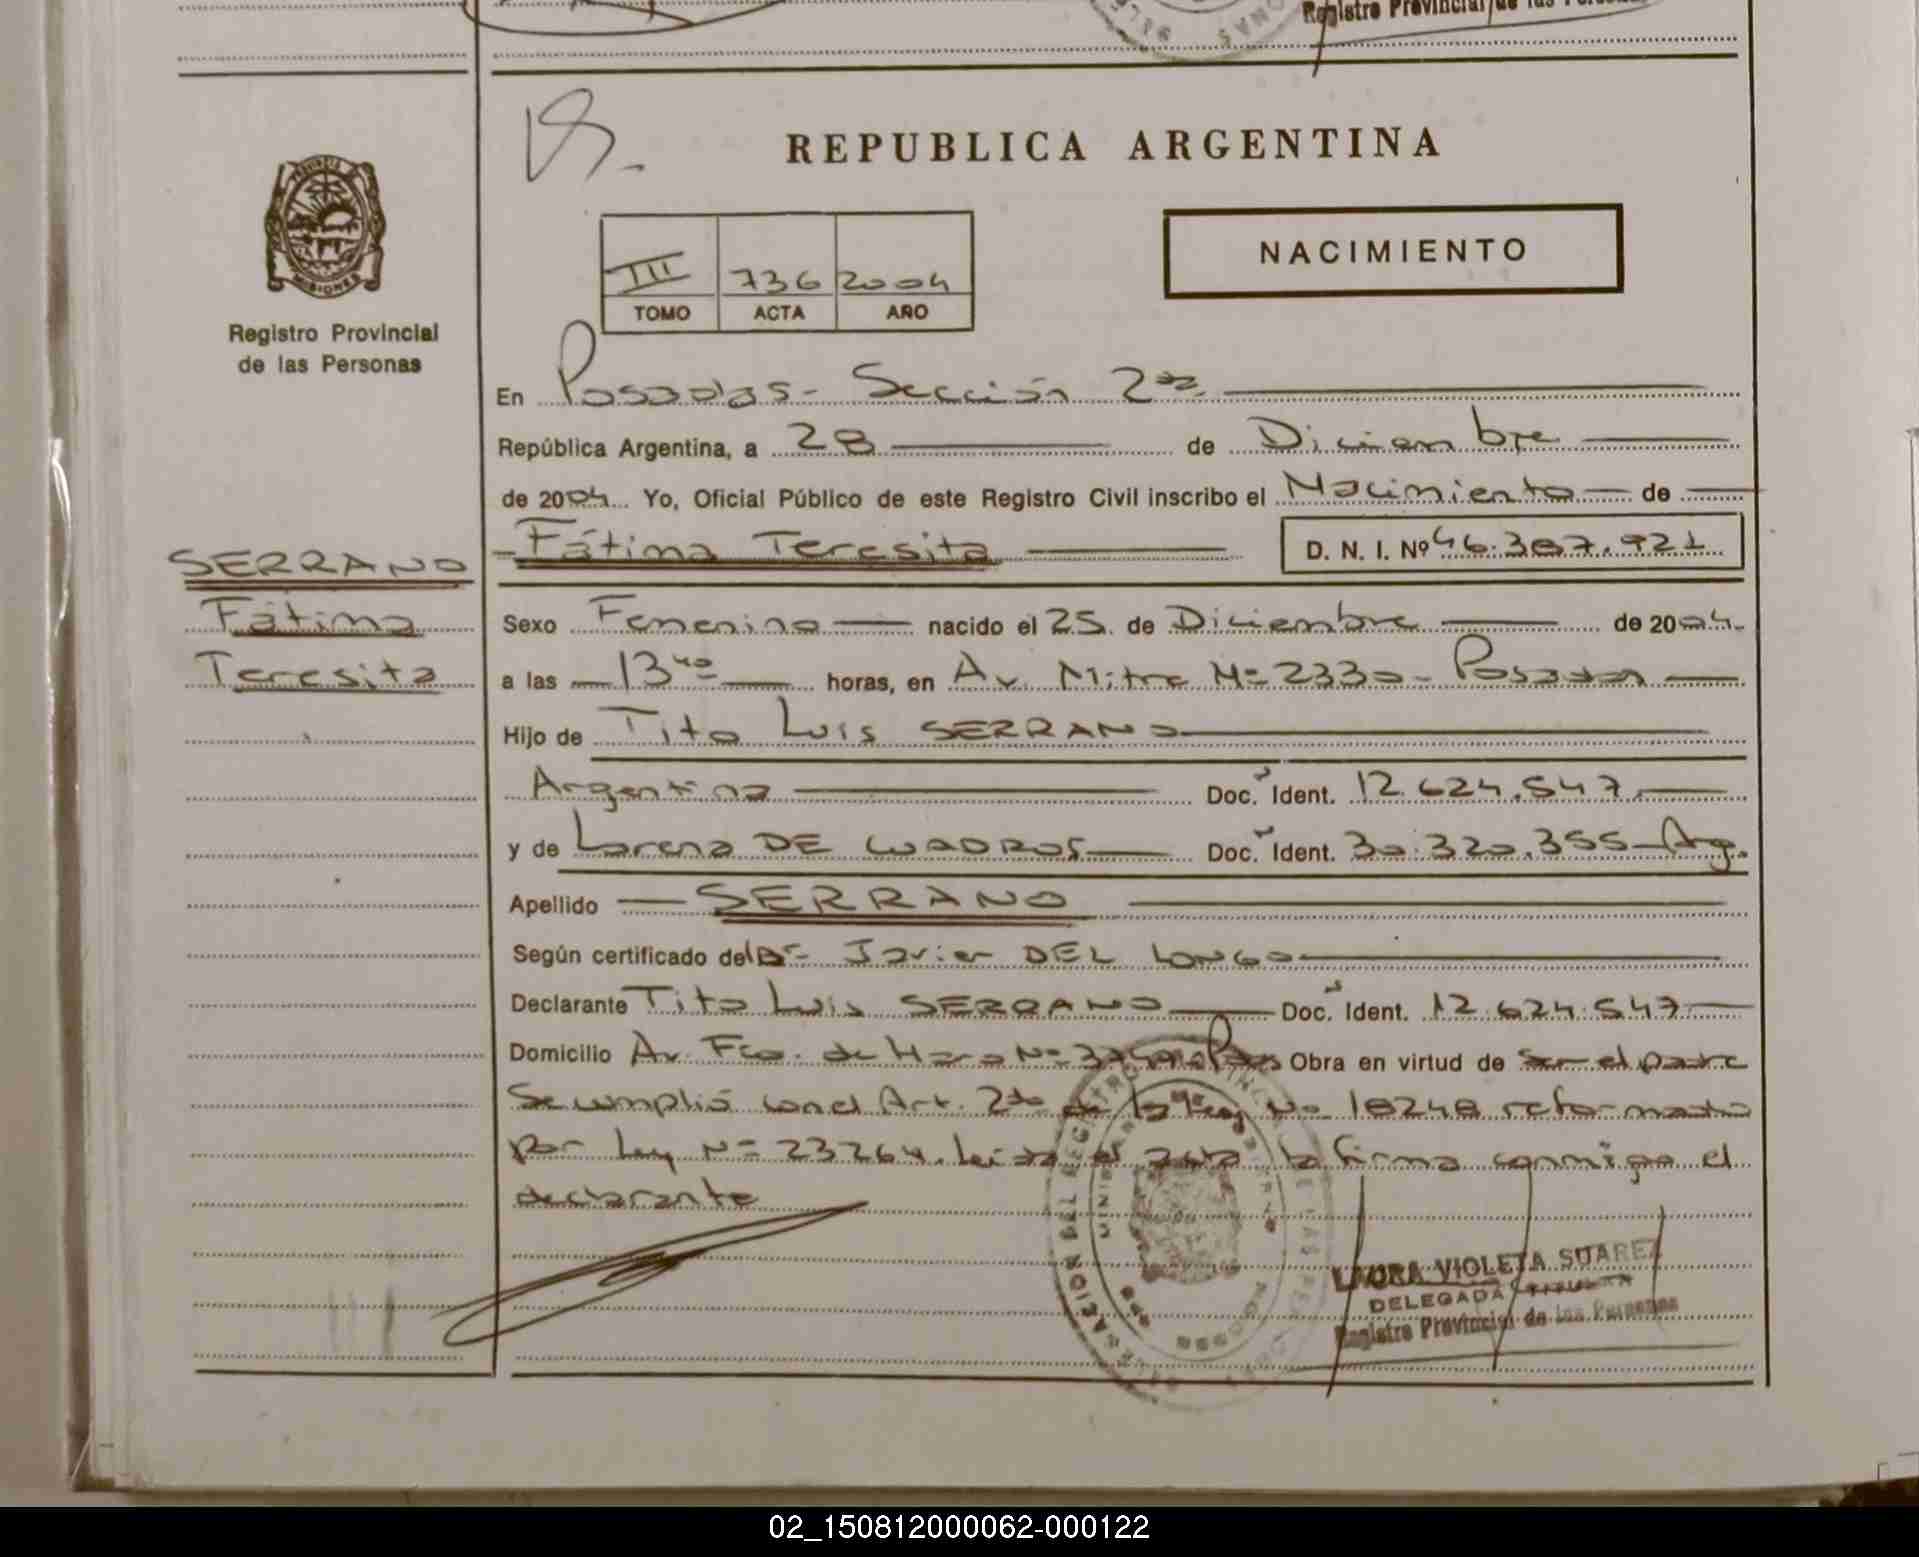 Registro Provincial de las Personas
REPUBLICA ARGENTINA
NACIMIENTO
III 736 2004
TOMO ACTA AÑO
MISIONES
Registro Provincial
de las Personas
En Posadas - Sección 2da
República Argentina, a 28 de Diciembre
de 2004 Yo, Oficial Público de este Registro Civil inscribo el Nacimiento de
Fátima Teresita D. N. I. Nº 46.387.921
SERRANO
Fátima
Teresita
Sexo Femenino nacido el 25 de Diciembre de 2004.
a las 13 40 horas, en Av. Mitre Nº 2330 - Posadas
Hijo de Tito Luis SERRANO
Argentina Doc. Ident. 12.624.547
y de Lorena DE CUADROS Doc. Ident. 30.320.355 - Arg.
Apellido SERRANO
Según certificado del Dr. Javier DEL LONGO
Declarante Tito Luis SERRANO Doc. Ident. 12.624.547
Domicilio Av. Fco. de Haro Nº Obra en virtud de ser el padre
Se cumplió con el Art. 2do de la Ley No 18248 reformado
por Ley Nº 23264. Leida el acta la firma conmigo el
declarante
LAURA VIOLETA SUAREZ
DELEGADA TITULAR
Registro Provincial de las Personas
02_150812000062-000122